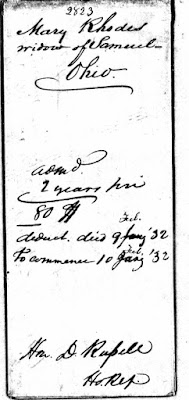 2823
Mary Rhodes
widow of Samuel
Ohio.
admd.
2 years pri
80 $
Feb.
deduct. died 9 Jany '32
Feb.
to commence 10 Jany '32
Hon. D. Russell
Ho. Rep